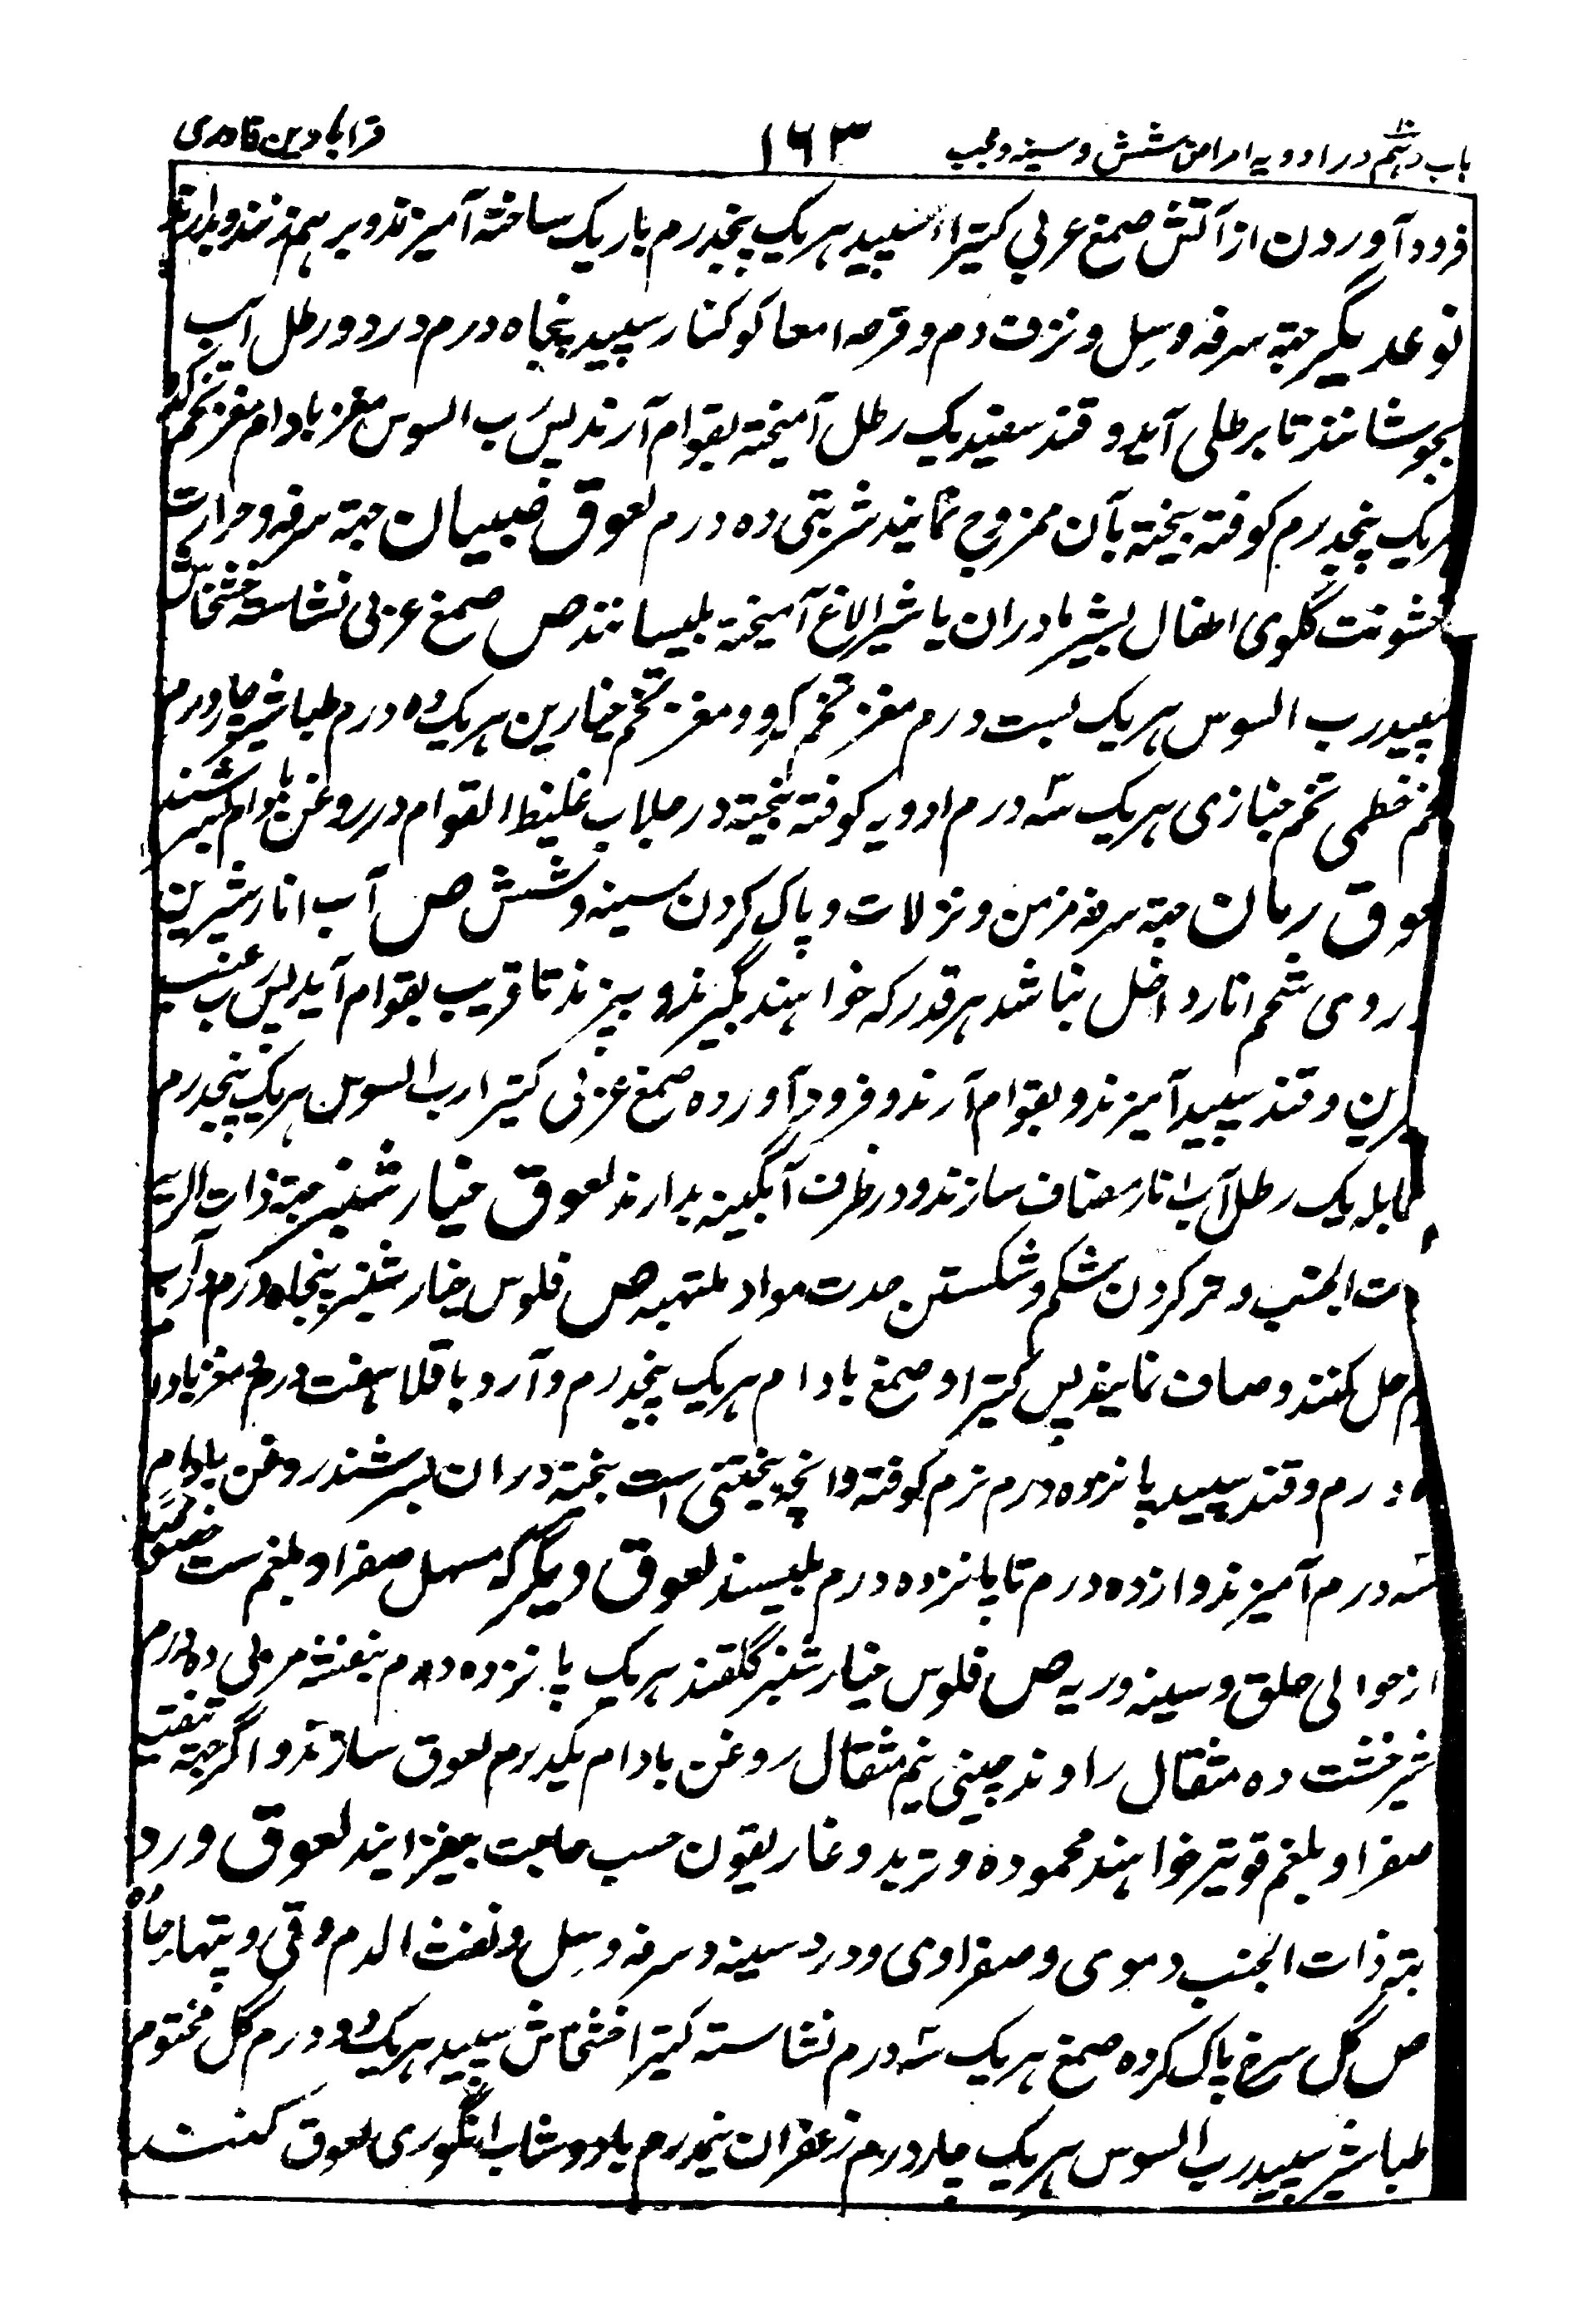 باب دہم در ادویه امراض شش و سینه و جنب ۱۶۳ قرابادین قادری
فرود آوردن از آتش صمغ عربی کتیرا سپید هریک پنجدرم باریک ساخته آمیزند و بر هم زنند و بدارند
نوعدیگر جهته سرفه و سل و نزف دم و قرحه امعا کوکنار سپید پنجاه درم در دو رطل آب
بجوشانند تا برطلی آید و قند سفید یک رطل آمیخته بقوام آرند پس رب السوس مغز بادام مغز تخم کدو
هریک پنجدرم کوفته بیخته بآن ممزوج نمایند شربتی ده درم لعوق صبیان جهته سرفه و حرارت
خشونت گلوی اطفال بشیر مادران یا شیر الاغ آمیخته بلیسانند ص صمغ عربی نشاسته خشخاش
سپید رب السوس هریک بست درم مغز تخم کدو و مغز تخم خیارین هریک ده درم طباشیر چاردرم
تخم خطمی تخم خبازی هریک سه درم ادویه کوفته بیخته در جلاب غلیظ القوام در روغن بادام بسرشند
لعوق رمان جهته سرفه مزمن و نزلات و پاک کردن سینه و شش ص آب انار شیرین
در وی شحم انار داخل نباشد هرقدر که خواهند بگیرند و بپزند تا قریب بقوام آید پس رب عنب
شیرین و قند سپید آمیزند و بقوام آرند و فرود آورده صمغ عربی کتیرا رب السوس هریک پنجدرم
مقابله یک رطل آب انار مضاف سازند و در ظرف آبگینه بدارند لعوق خیارشنبر جهته ذات الریه
ذات الجنب و تر کردن شکم و شکستن حدت مواد ملتهبه ص فلوس خیارشنبر پنجاه درم در آب
گرم حل کنند و صاف نمایند پس کتیرا و صمغ بادام هریک پنجدرم و آرد باقلا هفت درم و مغز بادام
ده درم و قند سپید پانزده درم نرم کوفته و آنچه بیختنی است بیخته دران بسرشند روغن بادام
سه درم آمیزند و از ده درم تا پانزده درم بلیسند لعوق دیگر که مسهل صفرا و بلغم ست خصوصا
از حوالی حلق و سینه و ریه ص فلوس خیارشنبر گلقند هریک پانزده درم بنفشه مربی ده درم
شیرخشت ده مثقال راوند چینی نیم مثقال روغن بادام یکدرم لعوق سازند و اگر جهته تنقیه
صفرا و بلغم قویتر خواهند محموده و تربد و غاریقون حسب حاجت بیفزایند لعوق ورد
جهته ذات الجنب دموی و صفراوی و درد سینه و سرفه و سل و نفث الدم و قی و تپهای حاده
ص گل سرخ پاک کرده صمغ هریک سه درم نشاسته کتیرا خشخاش سپید هریک دو درم گل مختوم
طباشیر سپید رب السوس هریک چاردرم زعفران نیمدرم با دوشاب انگوری لعوق کنند